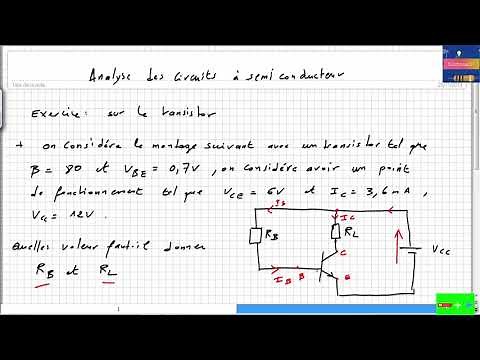 Analyse des circuits à semiconducteur
Exercice : sur le transistor
+ on considére le montage suivant avec un transistor tel que
β = 80 et VBE = 0,7V, on considére avoir un point
de fonctionnement tel que VCE = 6V et IC = 3,6 mA,
VCC = 12V.
Quelles valeur faut-il donner
RB et RL
IB
IC
RB
RL
C
VCC
IB
B
e